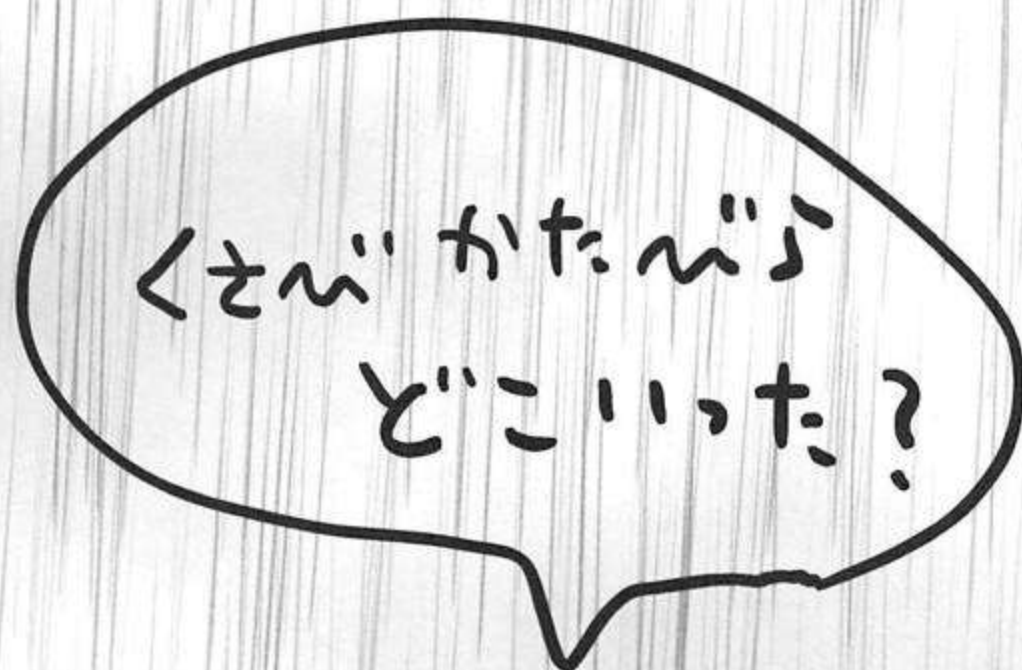 くさび かたびら
どこいった?